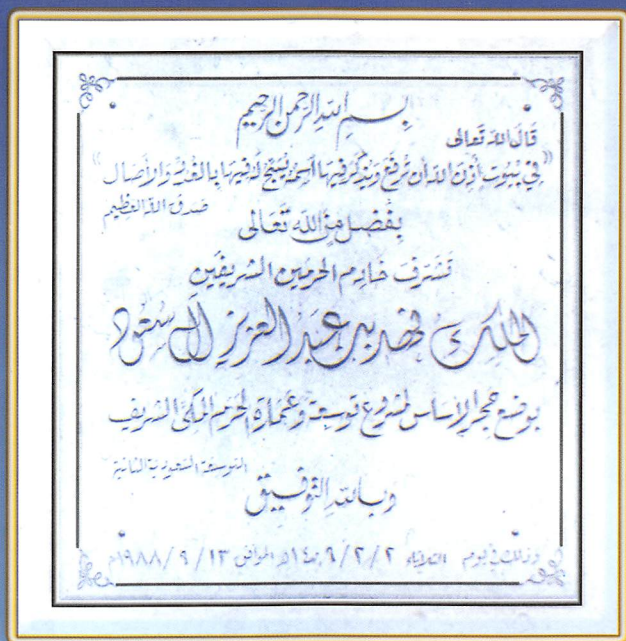 بسم الله الرحمن الرحيم
قال الله تعالى
«في بيوت أذن الله أن ترفع ويذكر فيها اسمه يسبح له فيها بالغدو والآصال»
صدق الله العظيم
بفضل من الله تعالى
تشرف خادم الحرمين الشريفين
الملك فهد بن عبد العزيز آل سعود
بوضع حجر الأساس لمشروع توسعة وعمارة الحرم المكي الشريف
التوسعة السعودية الثانية
وبالله التوفيق
وذلك في يوم الثلاثاء ١٤٠٩/٢/٢هـ الموافق ١٩٨٨/٩/١٣م